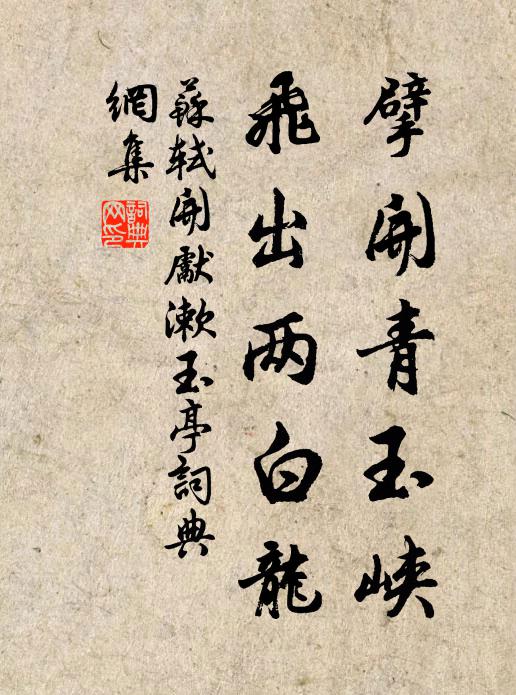 擘開青玉峽
飛出两白龍
蘇軾開獻漱玉亭詞典
網集
詞典
网印